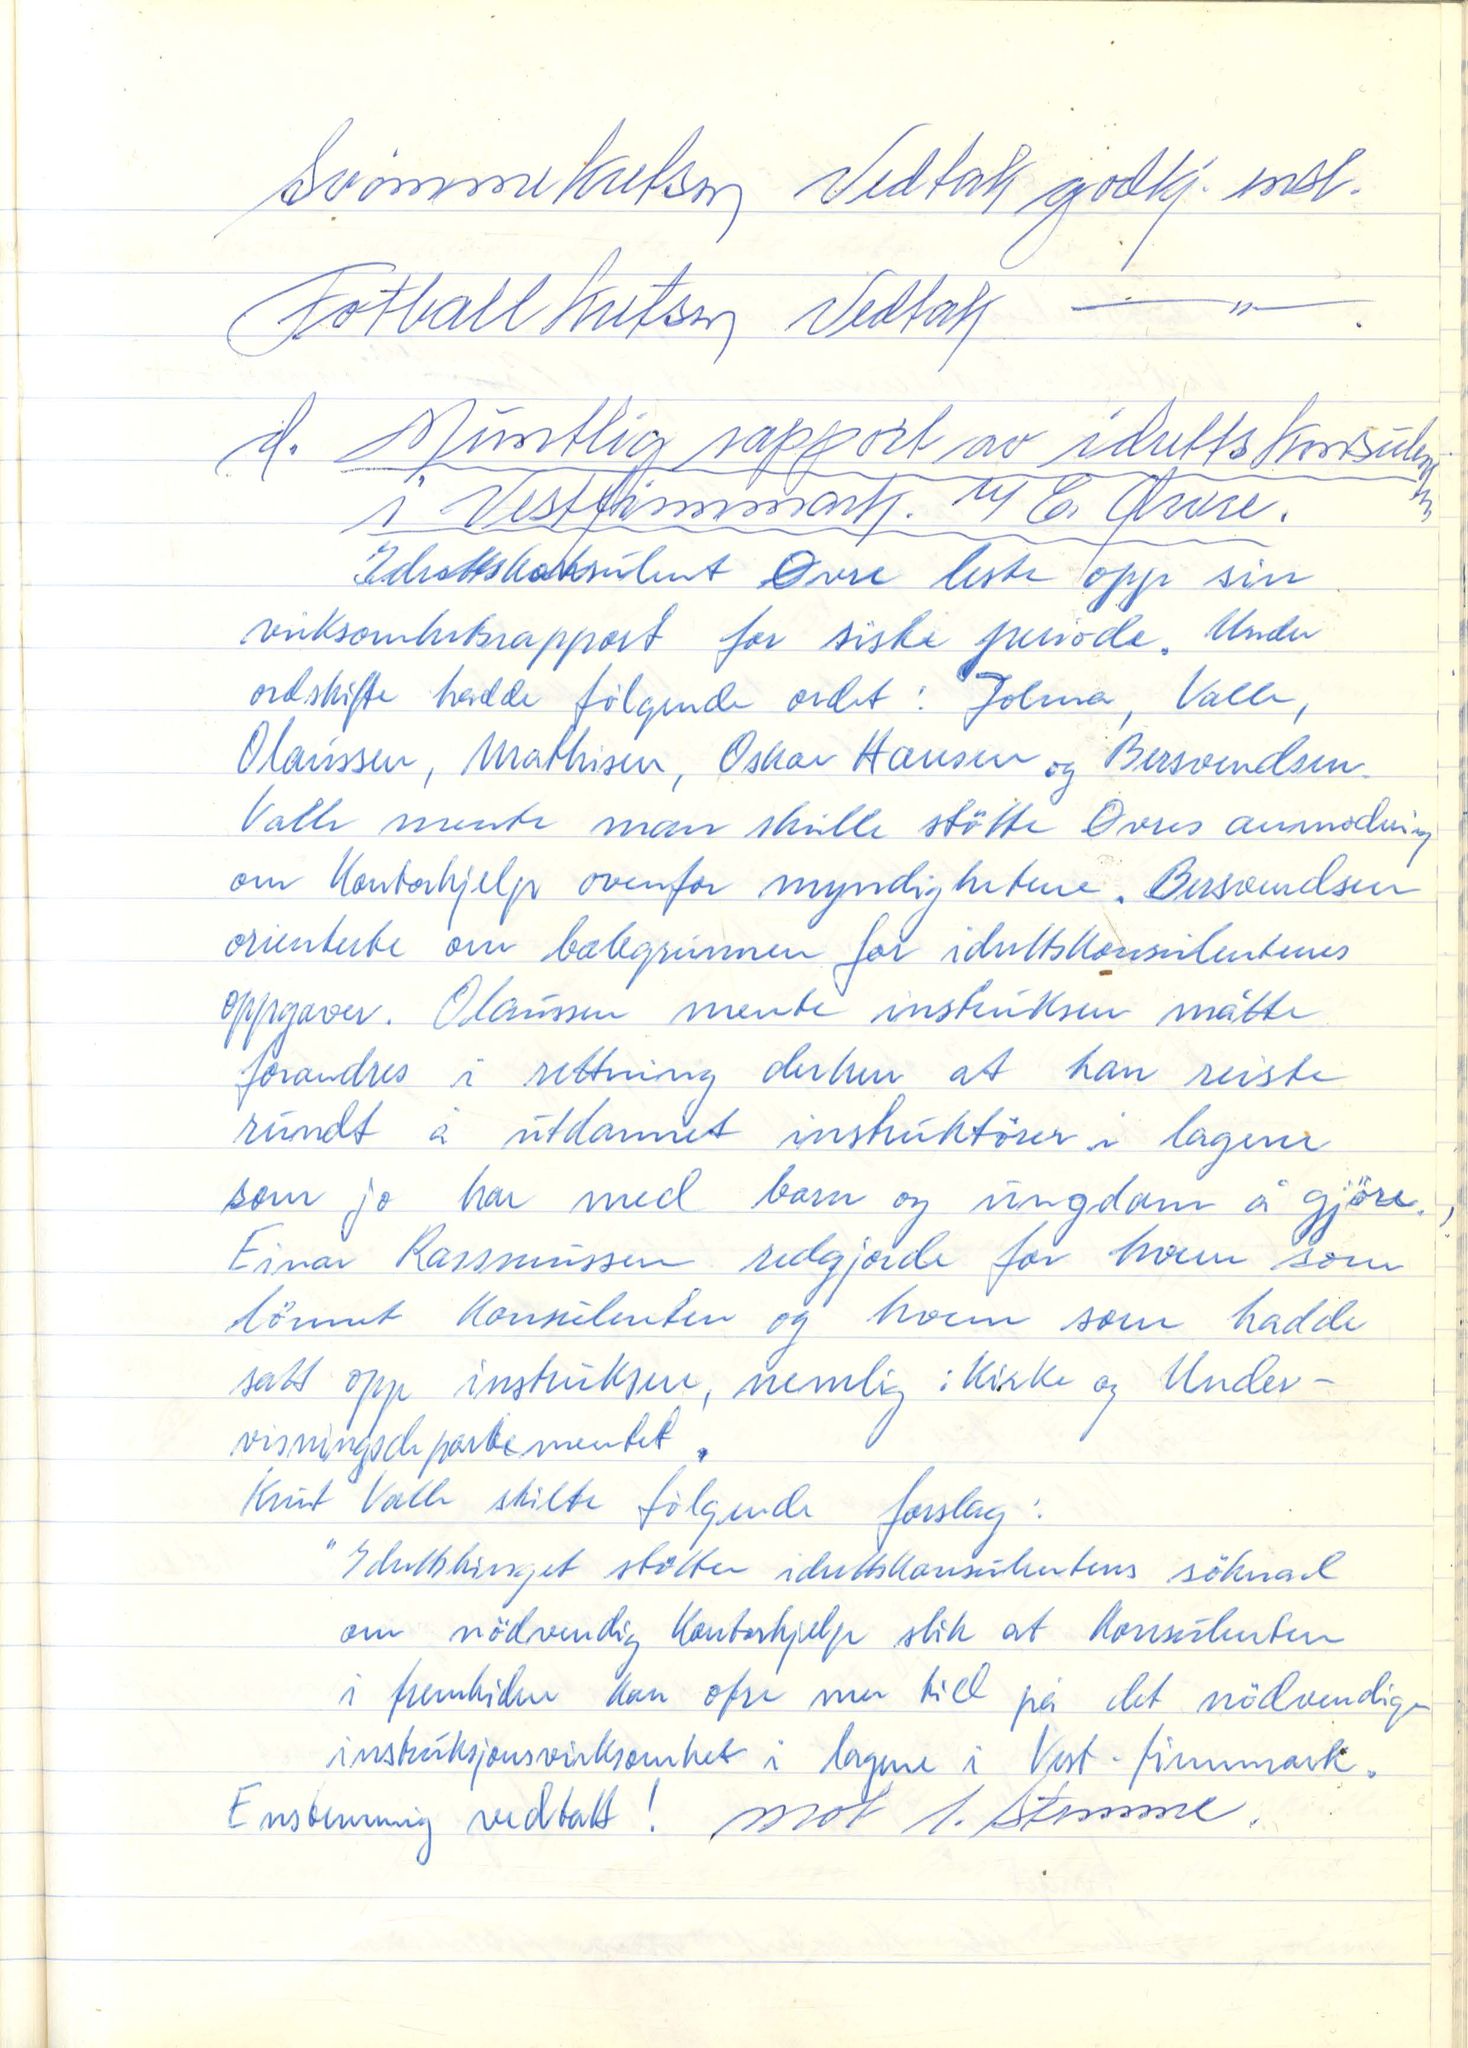 Svømmekretsen Vedtak godkj. enst.
Fotballkretsen Vedtak — " — .
d. Muntlig rapport av idrettskonsulenten
i Vestfinnmark. v/ E. Øvre.
Idrettskonsulent Øvre leste opp sin
virksomhetsrapport for siste periode. Under
ordskifte hadde følgende ordet: Jolma, Valle,
Olaussen, Mathisen, Oskar Hansen og Bersvendsen.
Valle mente man skulle støtte Øvres anmodning
om kontorhjelp ovenfor myndighetene. Bersvendsen
orienterte om bakgrunnen for idrettskonsulentenes
oppgaver. Olaussen mente instruksen måtte
forandres i rettning derhen at han reiste
rundt å utdannet instruktører i lagene
som jo har med barn og ungdom å gjøre.
Einar Rassmussen redgjorde for hvem som
lønnet konsulenten og hvem som hadde
satt opp instruksen, nemlig: Kirke og Under-
visningsdepartementet.
Knut Valle stilte følgende forslag:
"Idrettstinget støtter idrettskonsulentens søknad
om nødvendig kontorhjelp slik at konsulenten
i fremtiden kan ofre mer tid på det nødvendige
instruksjonsvirksomhet i lagene i Vest-finnmark.
Enstemmig vedtatt! mot 1. stemme.